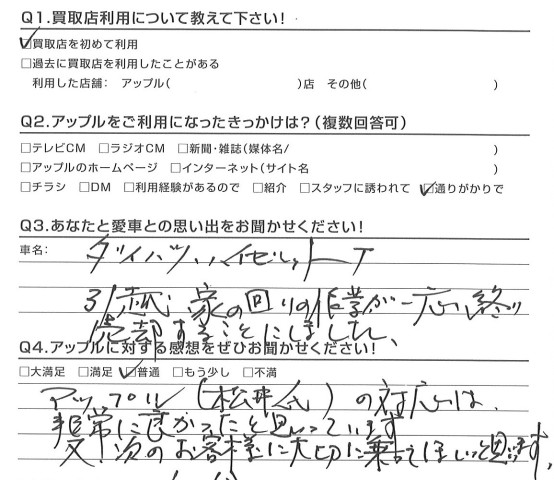 Q1.買取店利用について教えて下さい！
☑買取店を初めて利用
□過去に買取店を利用したことがある
利用した店舗： アップル（ ）店 その他（ ）
Q2.アップルをご利用になったきっかけは？（複数回答可）
□テレビCM □ラジオCM □新聞・雑誌（媒体名/ ）
□アップルのホームページ □インターネット（サイト名 ）
□チラシ □DM □利用経験があるので □紹介 □スタッフに誘われて ☑通りがかりで
Q3.あなたと愛車との思い出をお聞かせください！
車名： ダイハツ ハイゼット
家の回りの作業が一応終り
売却することにしました、
Q4.アップルに対する感想をぜひお聞かせください！
□大満足 □満足 ☑普通 □もう少し □不満
アップル（松井氏）の対応は、
非常に良かったと思っています
又！次のお客様に大切に乗ってほしいと思います，